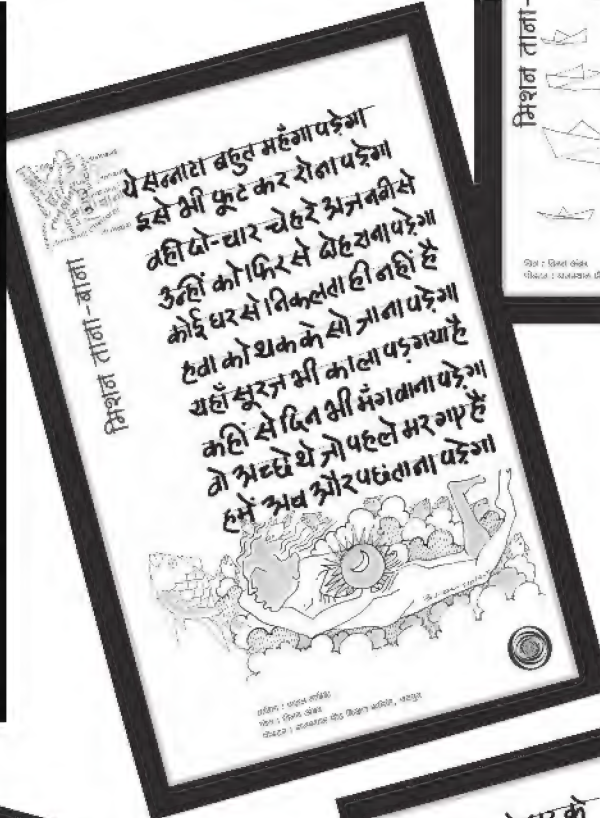 मिशन ताना-बाना
ये सन्नाटा बहुत महँगा पड़ेगा
इसे भी फूट कर रोना पड़ेगा
वही दो-चार चेहरे अजनबी से
उन्हीं को फिर से दोहराना पड़ेगा
कोई घर से निकलता ही नहीं है
हवा को थक के सो जाना पड़ेगा
यहाँ सूरज भी काला पड़ गया है
कहीं से दिन भी मँगवाना पड़ेगा
वो अच्छे थे जो पहले मर गए हैं
हमें अब और पछताना पड़ेगा
मिशन ताना-